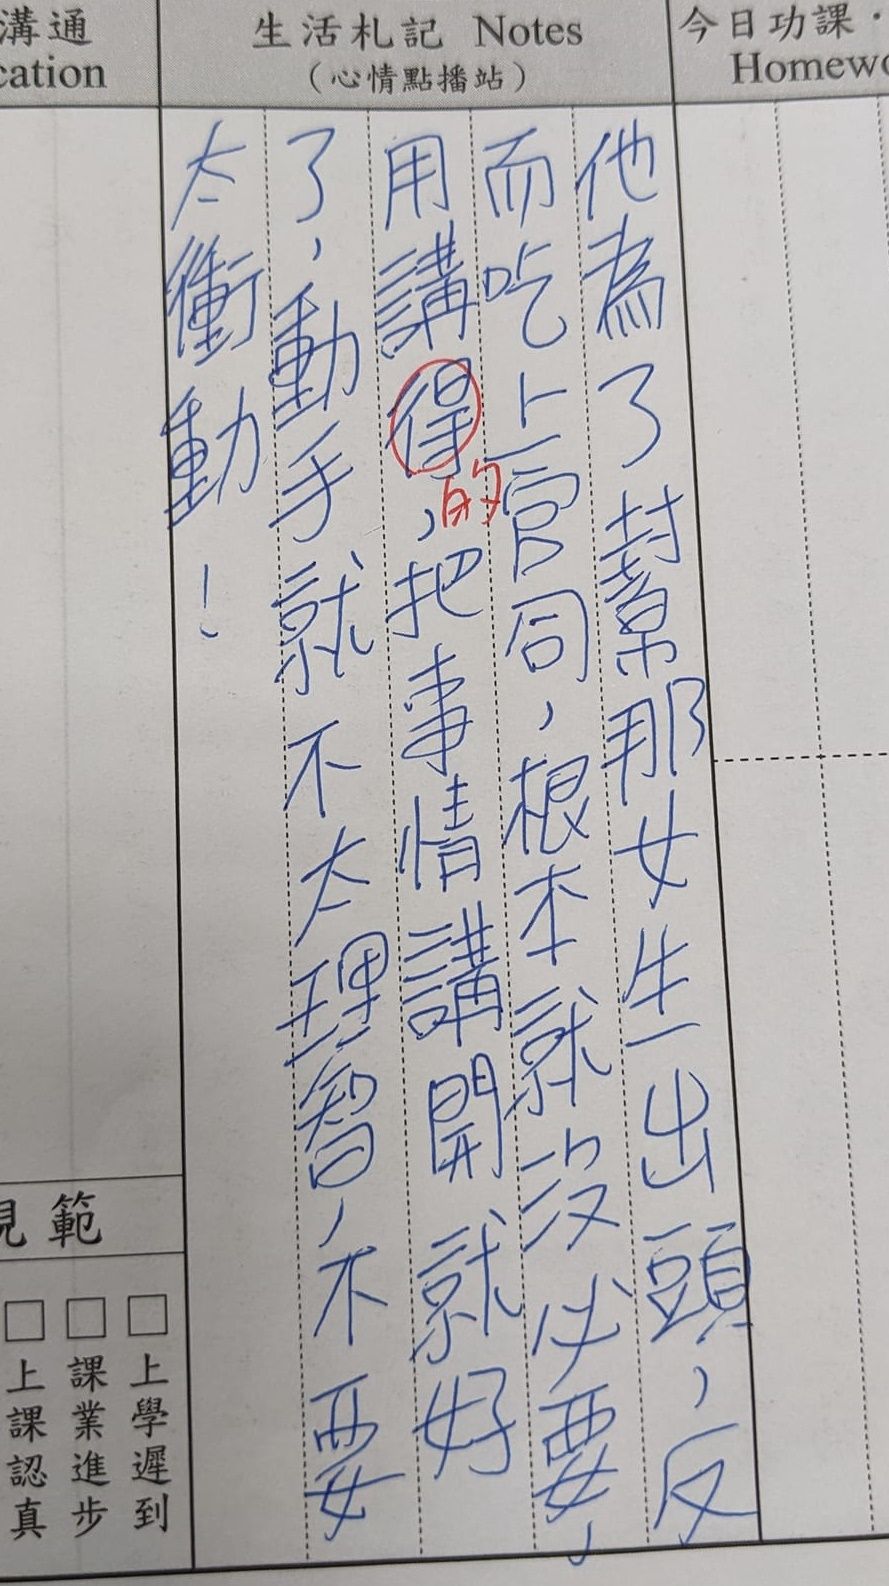 溝通
cation
生活札記 Notes
（心情點播站）
今日功課·
Homewo
他為了幫那女生出頭，反
而吃上官司，根本就沒必要，
用講得，把事情講開就好
的
了，動手就不太理智，不要
太衝動！
現範
上學遲到
課業進步
上課認真